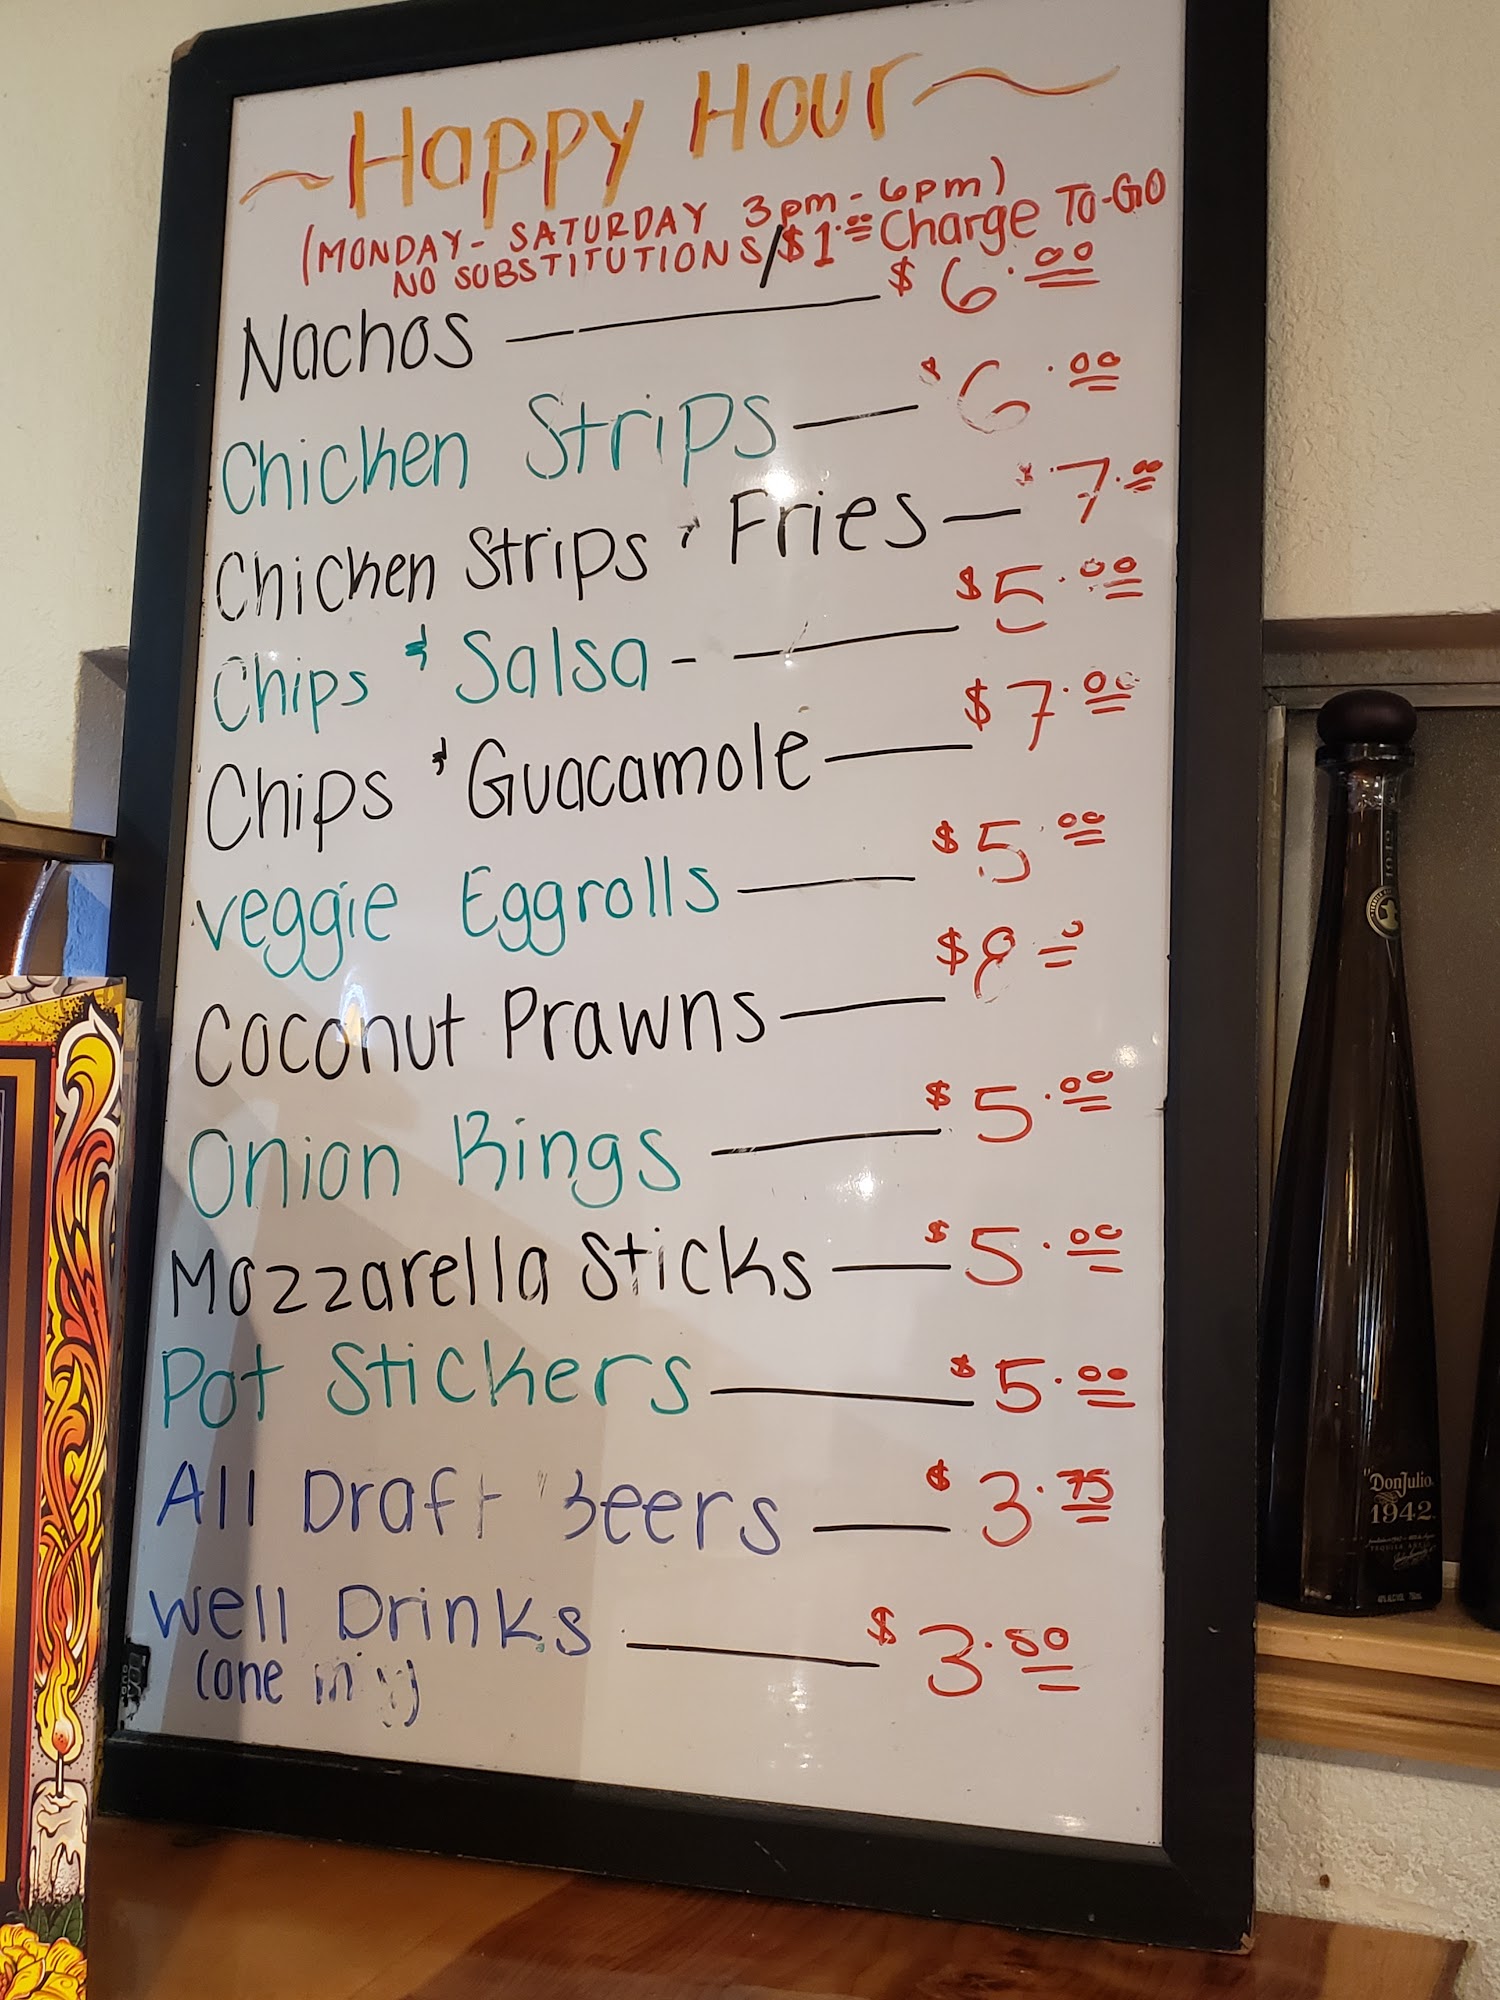 ~Happy Hour~
(MONDAY - SATURDAY 3pm - 6pm)
NO SUBSTITUTIONS/$1.00 Charge To-GO
Nachos $6.00
Chicken Strips $6.00
Chicken Strips & Fries $7.00
Chips & Salsa $5.00
Chips & Guacamole $7.00
veggie Eggrolls $5.00
Coconut Prawns $8
Onion Rings $5.00
Mozzarella Sticks $5.00
Pot Stickers $5.00
All Draft Beers $3.75
Well Drinks $3.50
(one
1942
"Don Julio.
1942.